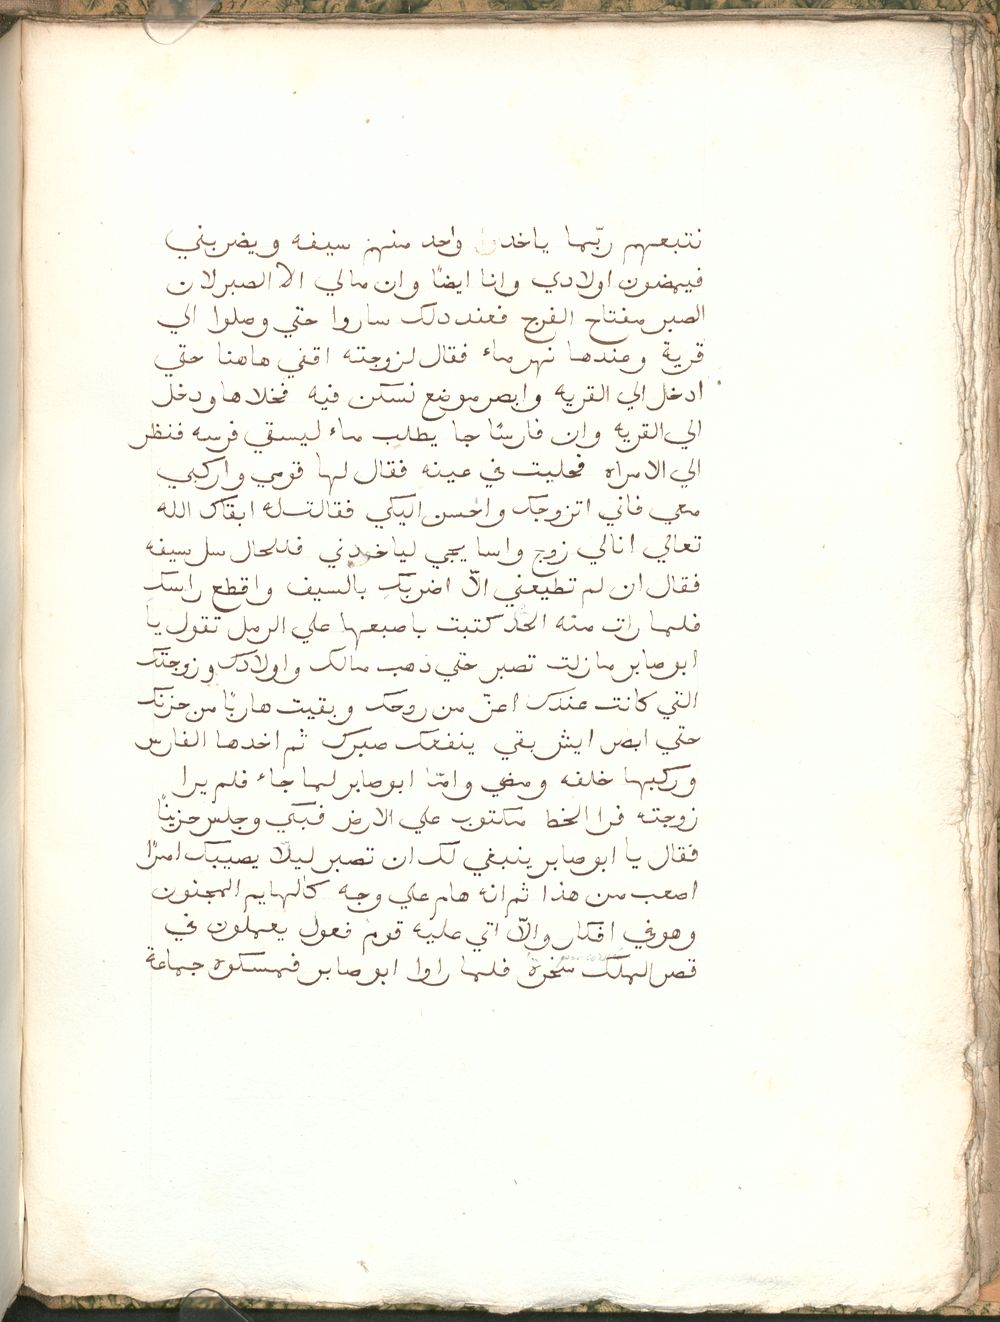 نتبعهم ربّما ياخدوا واحد منهم سيفه ويضربني
فيمضون اولادي وانا ايضًا وان مالي الا الصبر لان
الصبر مفتاح الفرج فعند دلك ساروا حتي وصلوا الي
قرية وعندها نهر ماء فقال لزوجته اقفي هاهنا حتي
ادخل الي القريه وابصر موضع نسكن فيه فخلاها ودخل
الي القريه وان فارسًا جا يطلب ماء ليسقي فرسه فنظر
الي الامراه فحليت في عينه فقال لها قومي واركبي
معي فاني اتزوجك واحسن اليكي فقالت له ابقاك الله
تعالي انا لي زوج واسا يجي لياخدني فللحال سل سيفه
فقال ان لم تطيعني الّا اضربك بالسيف واقطع راسك
فلما رات منه الحد كتبت باصبعها علي الرمل تقول يا
ابو صابر ما زلت تصبر حتي دهب مالك واولادك وزوجتك
التي كانت عندك اعزّ من روحك وبقيت هاربًا من حزنك
حتي ابصر ايش بقي ينفعك صبرك ثم اخدها الفارس
وركبها خلفه ومضي وامّا ابو صابر لما جاء فلم يرا
زوجته قرا الخط مكتوب علي الارض فبكي وجلس حزينًا
فقال يا ابو صابر ينبغي لك ان تصبر ليلا يصيبك امرًا
اصعب من هذا ثم انه هام علي وجه كالهايم المجنون
وهو في افكار والّا اتي عليه قوم فعول يعملون في
قصر الملك سخرة فلما راوا ابو صابر فمسكوه جماعة